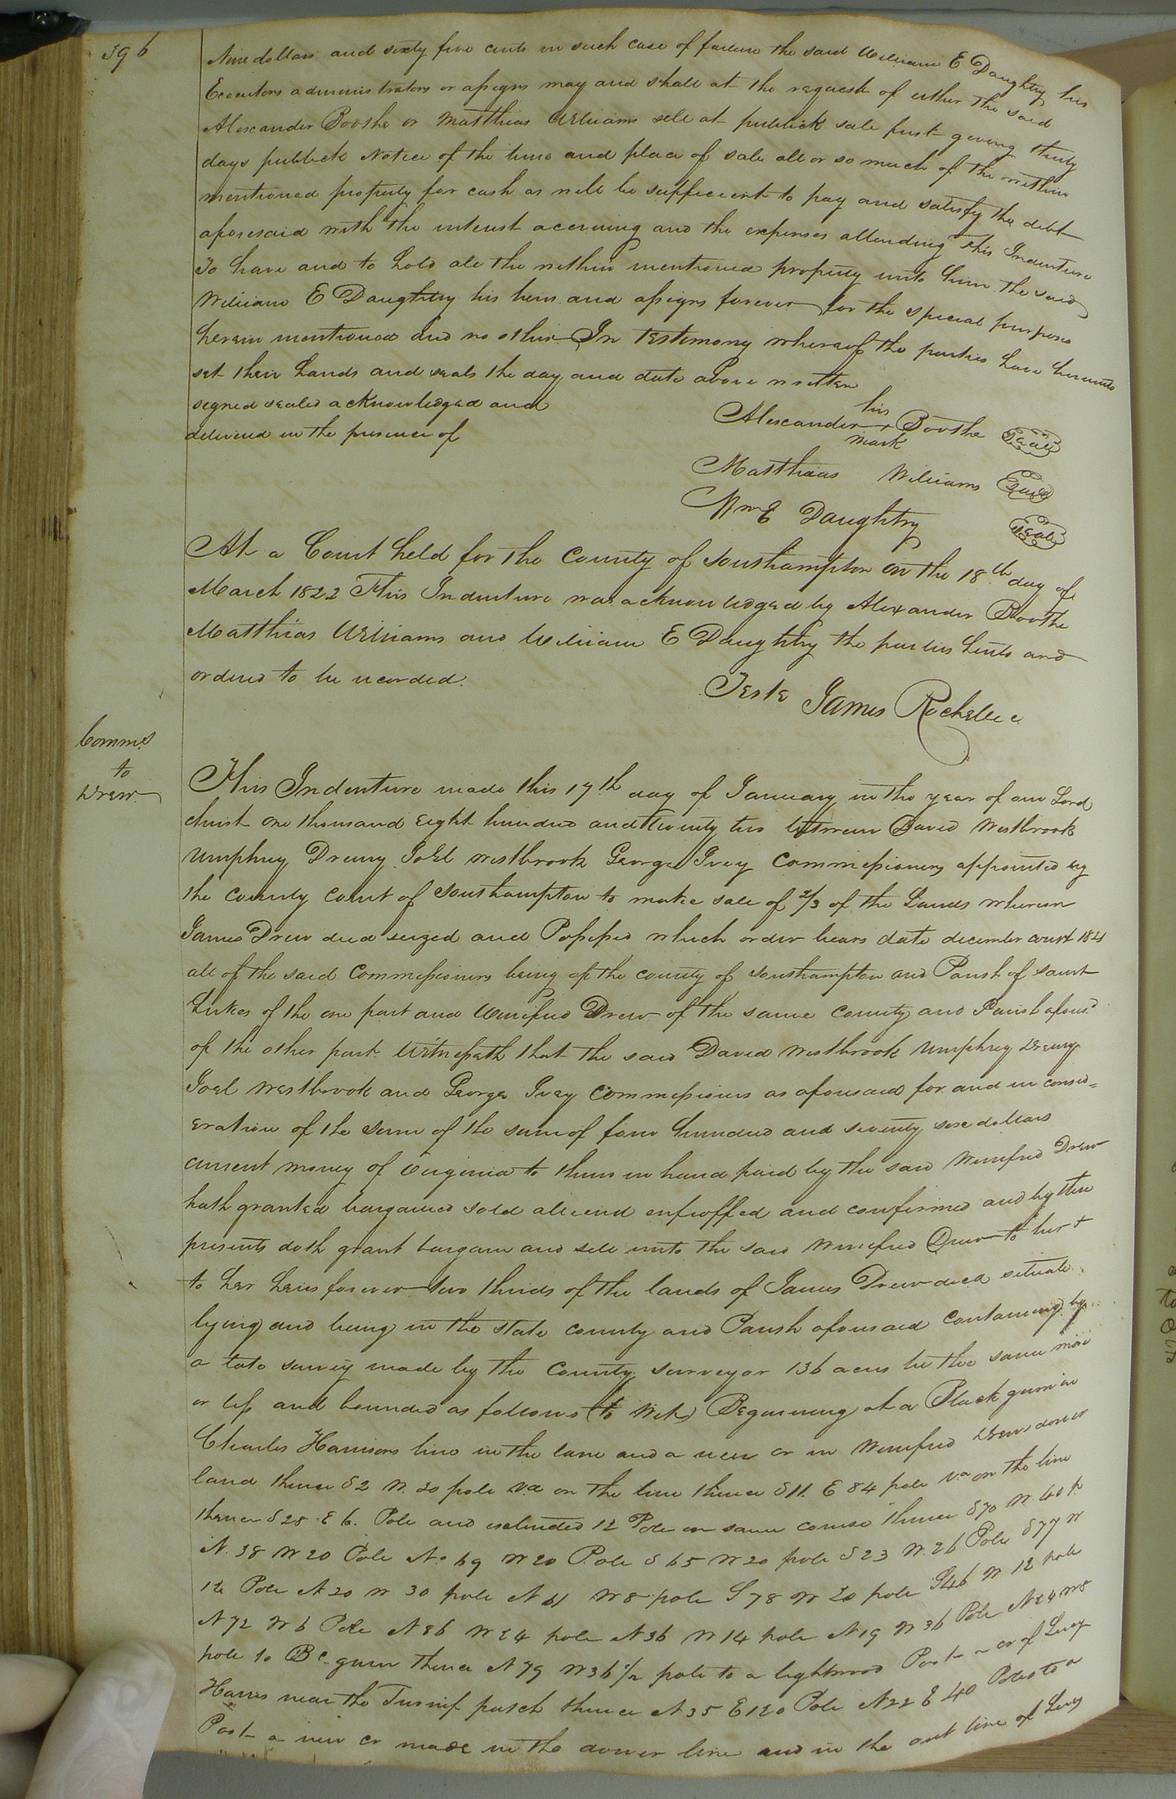 396
Nine dollars and sixty five cents in such case of failure the said William E Daughtry his
Executors administrators or assigns may and shall at the request of either the said
Alexander Boothe or Matthias Williams sell at publick sale first giving thirty
days publick Notice of the time and place of sale all or so much of the within
mentioned property for cash as will be suffecient to pay and satisfy the debt
aforesaid with the interest accruing and the expenses attending this Indenture
To have and to hold all the within mentioned property unto him the said
William E Daughtry his heirs and assigns forever for the special purposes
herein mentioned and no other In testimony whereof the parties have hereunto
set their hands and seals the day and date above written
signed sealed acknowledged and
delivered in the presence of
his
Alexander + Boothe Seal
mark
Matthias Williams Seal
Wm E Daughtry Seal
At a Court held for the County of Southampton on the 18th day of
March 1822 This Indenture was acknowledged by Alexander Boothe
Matthias Williams and William E Daughtry the parties hereto and
ordered to be recorded.
Teste James Rochelle c
Comms
to
Drew
This Indenture made this 17th day of January in the year of our Lord
christ one thousand eight hundred and twenty two between David Westbrook
Umphrey Drewry Joel Westbrook George Ivey Commissioners appointed by
the county court of Southampton to make sale of 2/3 of the Lands wherein
James Drew died seized and Possessed which order bears date december court 1821
all of the said Commissioners being of the county of Southampton and Parish of saint
Lukes of the one part and Winifred Drew of the same County and Parish afores'd
of the other part Witnesseth that the said David Westbrook Umphrey Drewry
Joel Westbrook and George Ivey Commissioners as aforesaid for and in consid=
eration of the sum of the sum of four hundred and seventy six dollars
current money of Virginia to them in hand paid by the said Winifred Drew
hath granted bargained sold aliened enfeoffed and confirmed and by these
presents doth grant bargain and sell unto the said Winifred Drew to her +
to her heirs forever two thirds of the lands of James Drew decd situate
lying and being in the state county and Parish aforesaid containing by
a late survey made by the County surveyor 136 acres be the same more
or less and bounded as follows (to Wit) Beginning at a Black gum in
Charles Harrisons line in the lane and a new cr in Winifred Drews dower
land thence S2 W. 20 pole Va on the line thence S11 E 84 pole Va on the line
thence S28 E 6. Pole and extended 12 Pole on same course thence S70 W. 40 P.
N. 38 W 20 Pole No 69 W 20 Pole S 65 W 20 pole S 23 W. 26 Pole S77 W
12 Pole N 20 W 30 pole N 61 W 8 pole S 78 W 20 pole S46 W 12 pole
N 72 W 6 Pole N 86 W 24 pole N 36 W 14 pole N 19 W 36 Pole N 24 W 8
pole to B gum thence N 79 W 36 1/2 pole to a lightwood Post a cr of Lucy
Harris near the Turnif patch thence N 35 E 120 Pole N 22 E 40 Poles to a
Post a new cr made in the dower line and in the out line of Lucy